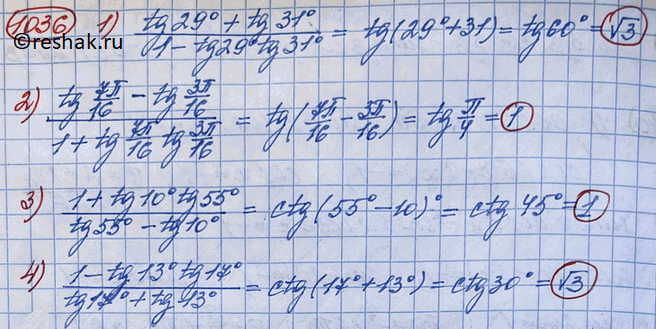 1036 1) (tg 29° + tg 31°)/(1 - tg29° tg 31°) = tg(29°+31) = tg60° = √3
©reshak.ru
2) (tg 7π/16 - tg 3π/16)/(1 + tg 7π/16 tg 3π/16) = tg(7π/16 - 3π/16) = tg π/4 = 1
3) (1 + tg10° tg55°)/(tg55° - tg10°) = ctg(55° - 10)° = ctg 45° = 1
4) (1 - tg 13° tg17°)/(tg17° + tg 13°) = ctg(17° + 13°) = ctg30° = √3